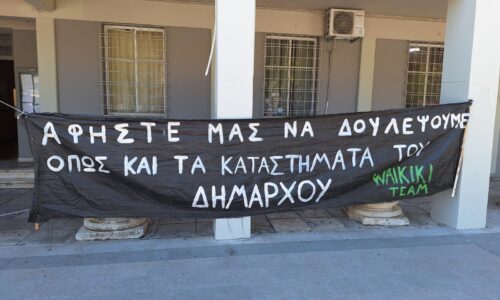 ΑΦΗΣΤΕ ΜΑΣ ΝΑ ΔΟΥΛΕΨΟΥΜΕ
ΟΠΩΣ ΚΑΙ ΤΑ ΚΑΤΑΣΤΗΜΑΤΑ ΤΟΥ
ΔΗΜΑΡΧΟΥ
WAIKIKI
TEAM